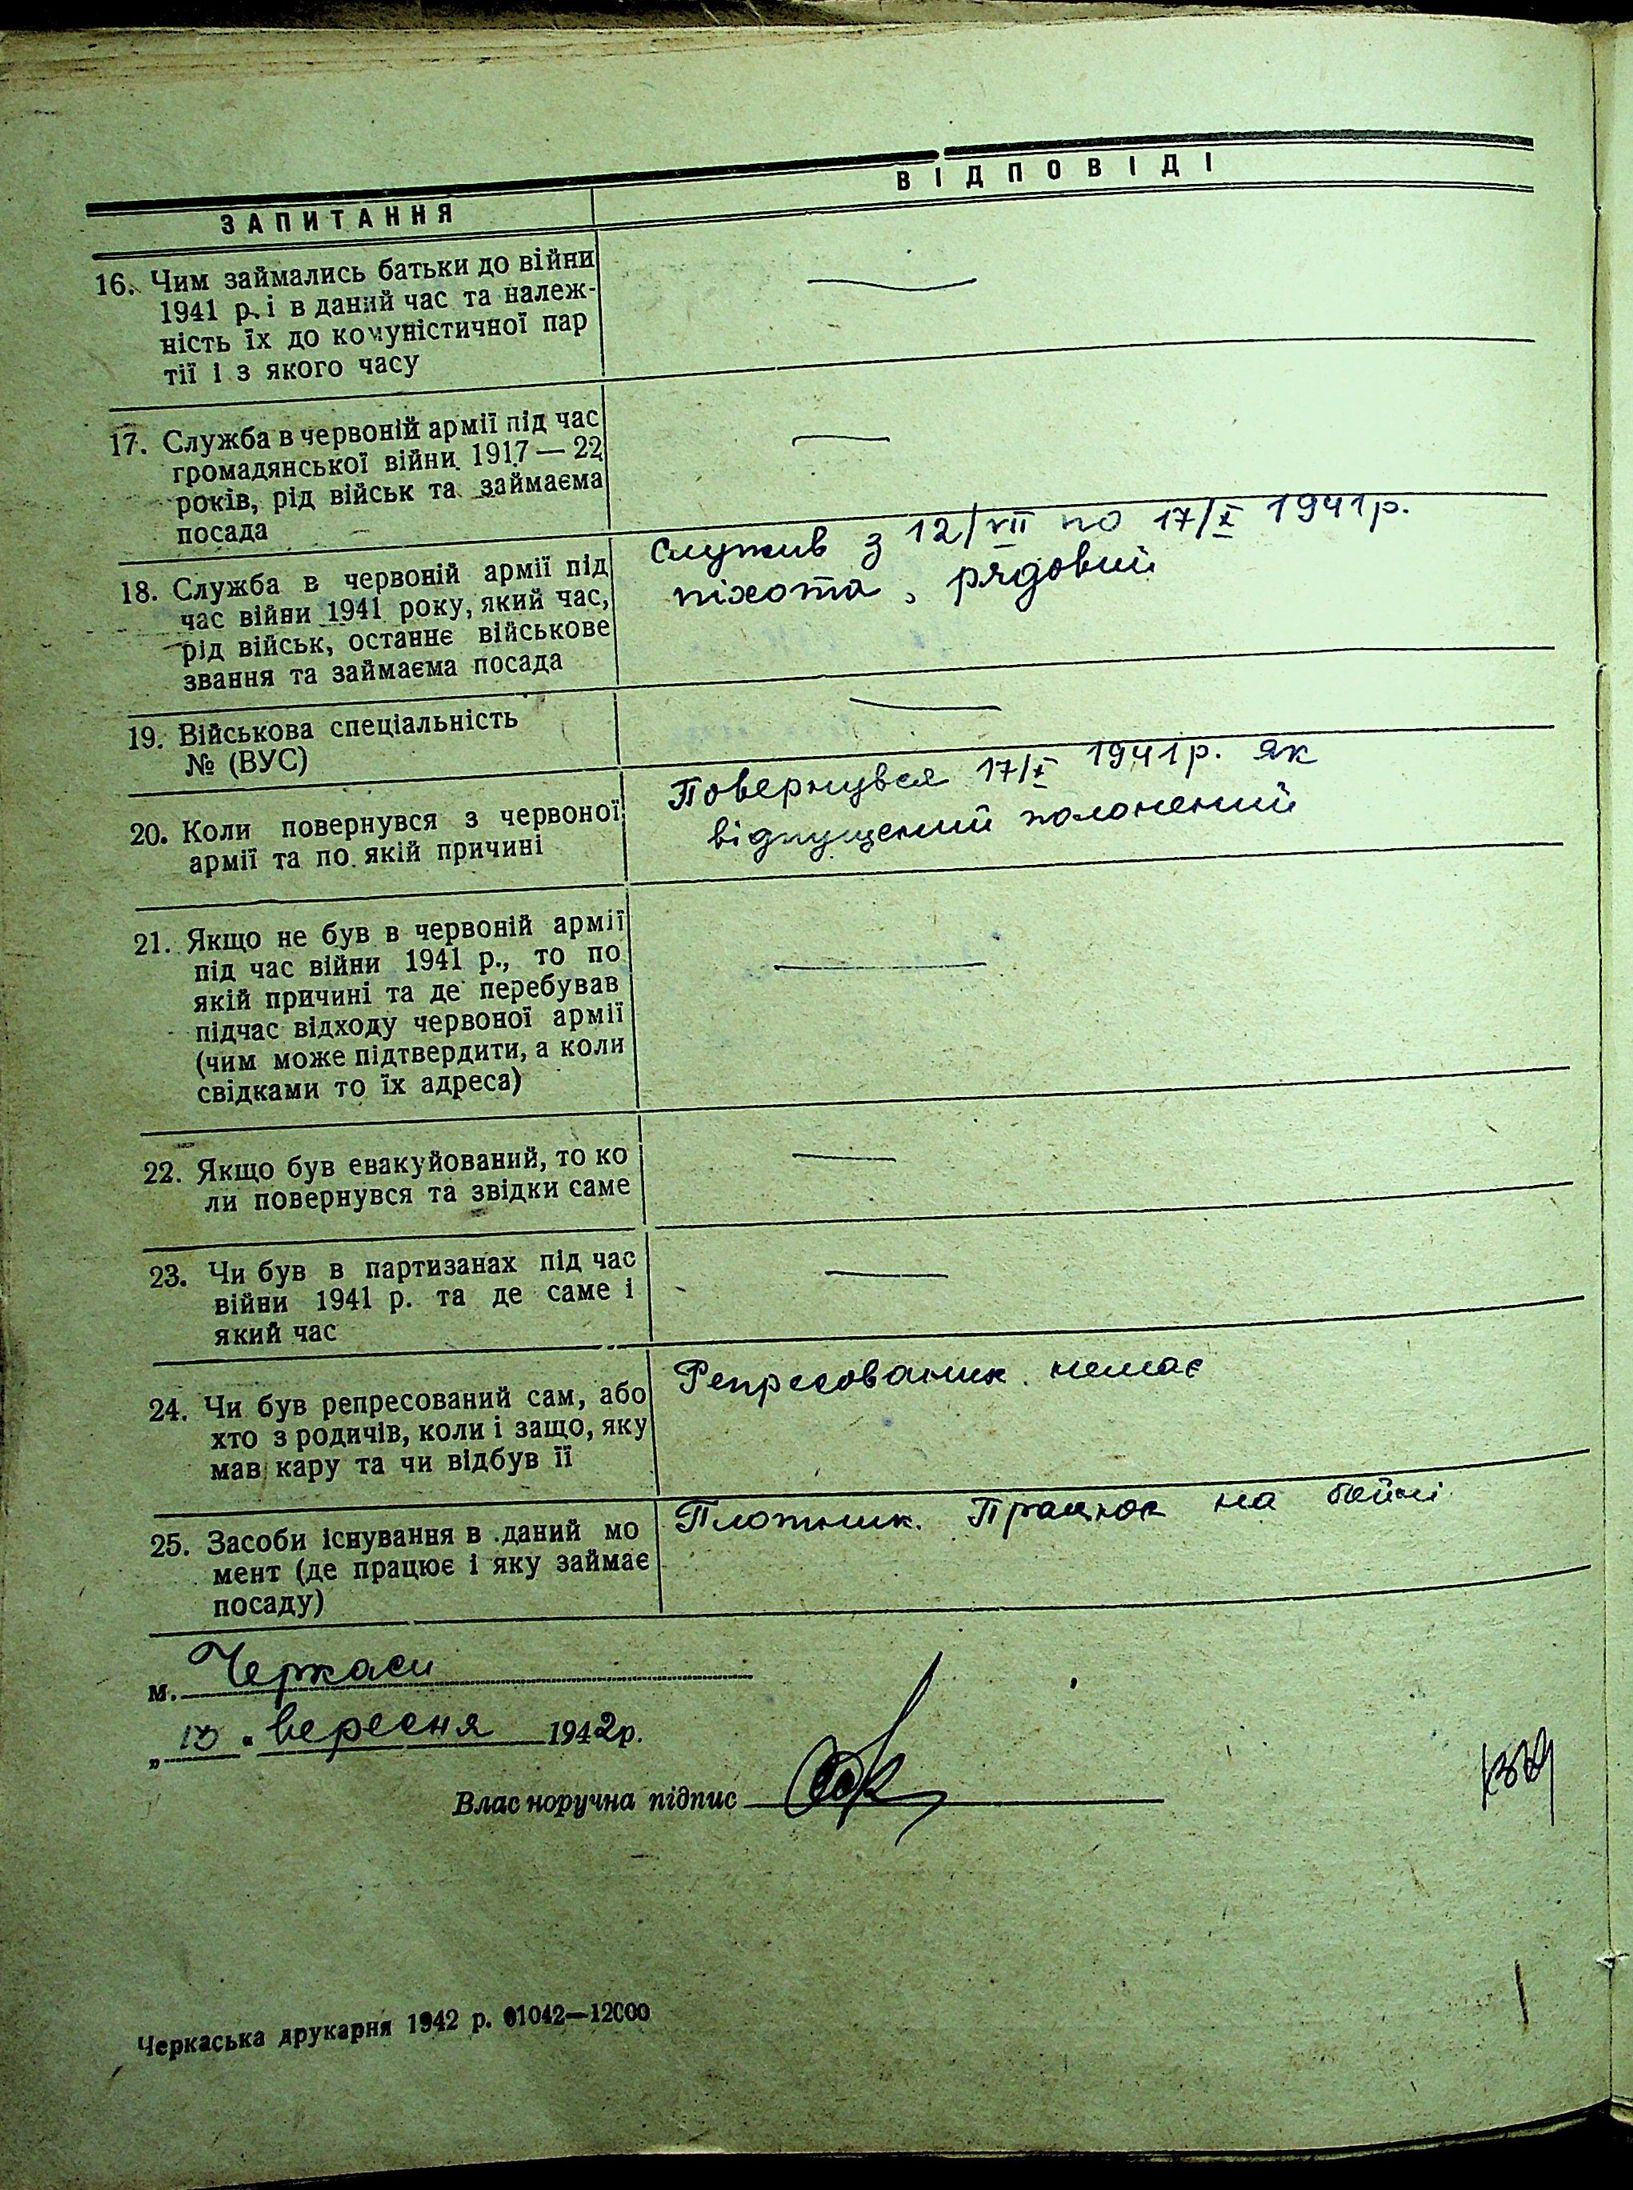 ЗАПИТАННЯ
ВІДПОВІДІ
16. Чим займались батьки до війни
1941 р. і в даний час та належ-
ність їх до комуністичної пар
тії і з якого часу
—
17. Служба в червоній армії під час
громадянської війни 1917 — 22
років, рід військ та займаєма
посада
—
18. Служба в червоній армії під
час війни 1941 року, який час,
рід військ, останнє військове
звання та займаєма посада
Служив з 12/VII по 17/X 1941 р.
піхота, рядовий
19. Військова спеціальність
№ (ВУС)
—
20. Коли повернувся з червоної
армії та по якій причині
Повернувся 17/X 1941 р. як
відпущений полонений
21. Якщо не був в червоній армії
під час війни 1941 р., то по
якій причині та де перебував
підчас відходу червоної армії
(чим може підтвердити, а коли
свідками то їх адреса)
—
22. Якщо був евакуйований, то ко
ли повернувся та звідки саме
—
23. Чи був в партизанах під час
війни 1941 р. та де саме і
який час
—
24. Чи був репресований сам, або
хто з родичів, коли і защо, яку
мав кару та чи відбув її
Репресованих немає
25. Засоби існування в даний мо
мент (де працює і яку займає
посаду)
Плотник. Працює на бойні
м. Черкаси
„ " вересня 1942 р.
Власноручна підпис
Черкаська друкарня 1942 р. 01042—12000